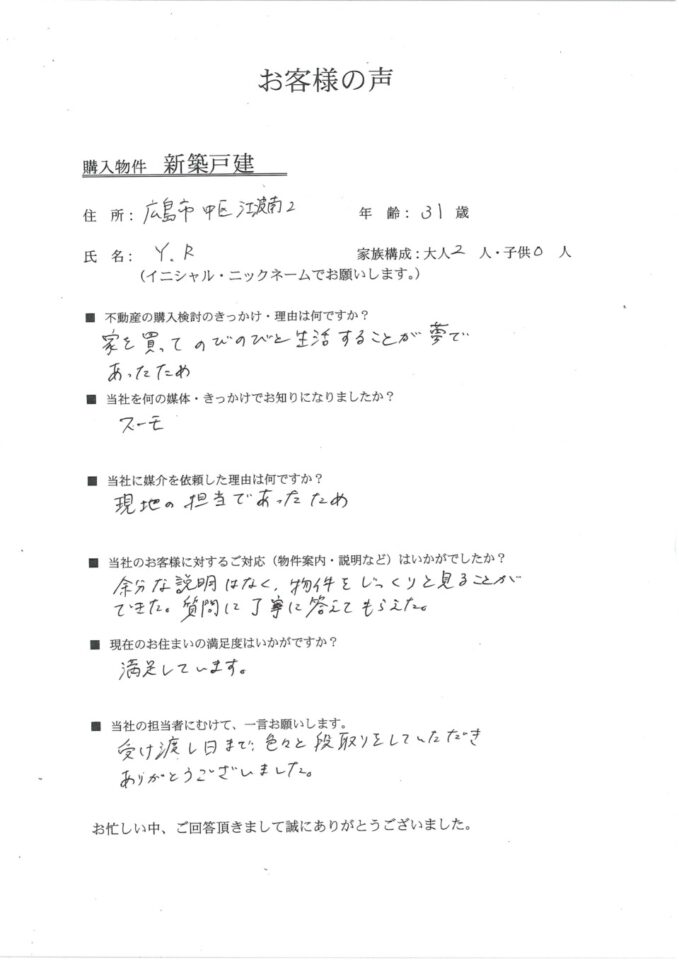 お客様の声
購入物件 新築戸建
住 所: 広島市中区江波南2 年 齢: 31 歳
氏 名: Y.R 家族構成:大人2 人・子供0 人
(イニシャル・ニックネームでお願いします。)
■ 不動産の購入検討のきっかけ・理由は何ですか?
家を買ってのびのびと生活することが夢で
あったため
■ 当社を何の媒体・きっかけでお知りになりましたか?
スーモ
■ 当社に媒介を依頼した理由は何ですか?
現地の担当であったため
■ 当社のお客様に対するご対応(物件案内・説明など)はいかがでしたか?
余分な説明はなく、物件をじっくりと見ることが
できた。質問に丁寧に答えてもらえた。
■ 現在のお住まいの満足度はいかがですか?
満足しています。
■ 当社の担当者にむけて、一言お願いします。
受け渡し日まで、色々と段取りをしていただき
ありがとうございました。
お忙しい中、ご回答頂きまして誠にありがとうございました。